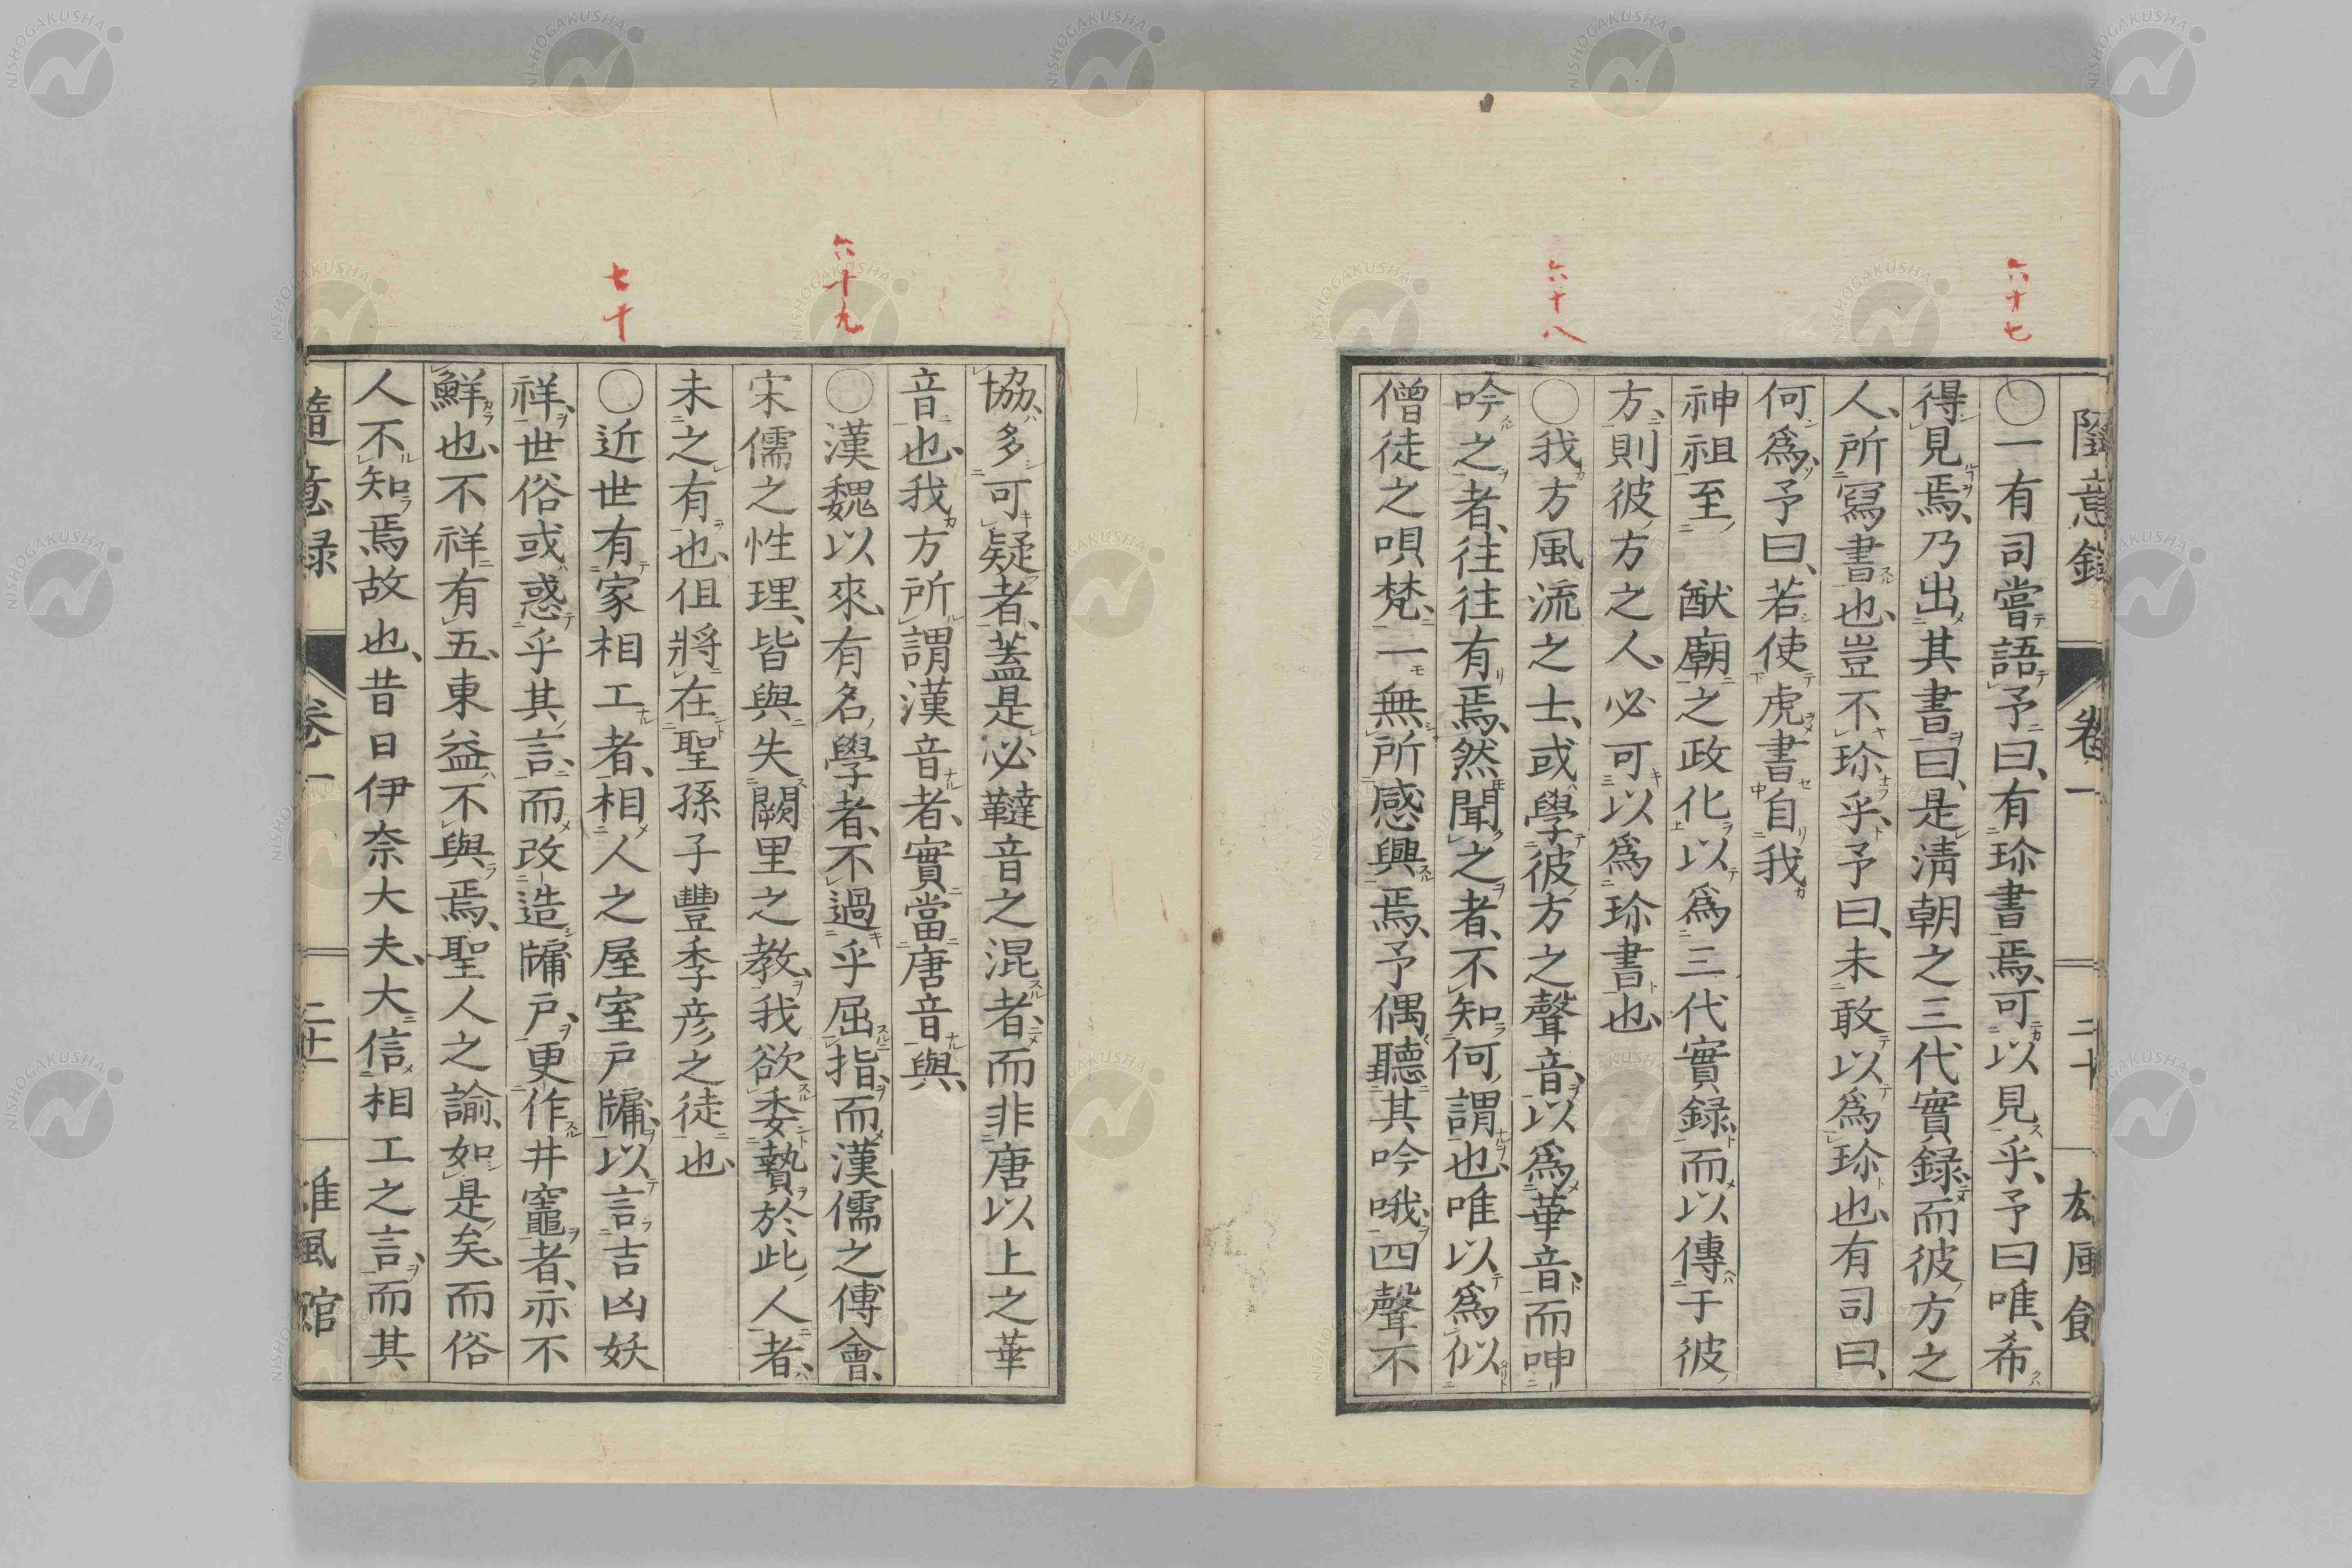 六十七
六十八
隨意録 卷一 二十
〇一有司嘗語予曰、有珎書焉、可以見乎、予曰唯、希
得見焉、乃出其書曰、是淸朝之三代實録、而彼方之
人、所寫書也、豈不珎乎、予曰、未敢以爲珎也、有司曰、
何爲、予曰、若使虎書自我
神祖至 猷廟之政化以爲三代實録、而以傳于彼
方、則彼方之人、必可以爲珎書也、
〇我方風流之士、或學彼方之聲音、以爲華音、而呻
吟之者、往往有焉、然聞之者、不知何謂也、唯以爲似
僧徒之唄梵、一無所感興焉、予偶聽其吟哦、四聲不
六十九
七十
協、多可疑者、蓋是必韃音之混者、而非唐以上之華
音也、我方所謂漢音者、實當唐音與、
〇漢魏以來、有名學者、不過乎屈指、而漢儒之傳會、
宋儒之性理、皆與失闕里之教、我欲委贄於此人者、
未之有也、伹將在聖孫子豐季彦之徒也、
〇近世有家相工者、相人之屋室戸牖、以言吉凶妖
祥、世俗或惑乎其言、而改造牖戸、更作井竈者、亦不
鮮也、不祥有五、東益不與焉、聖人之諭、如是矣、而俗
人不知焉故也、昔日伊奈大夫、大信相工之言、而其
隨意録 卷一 二十一